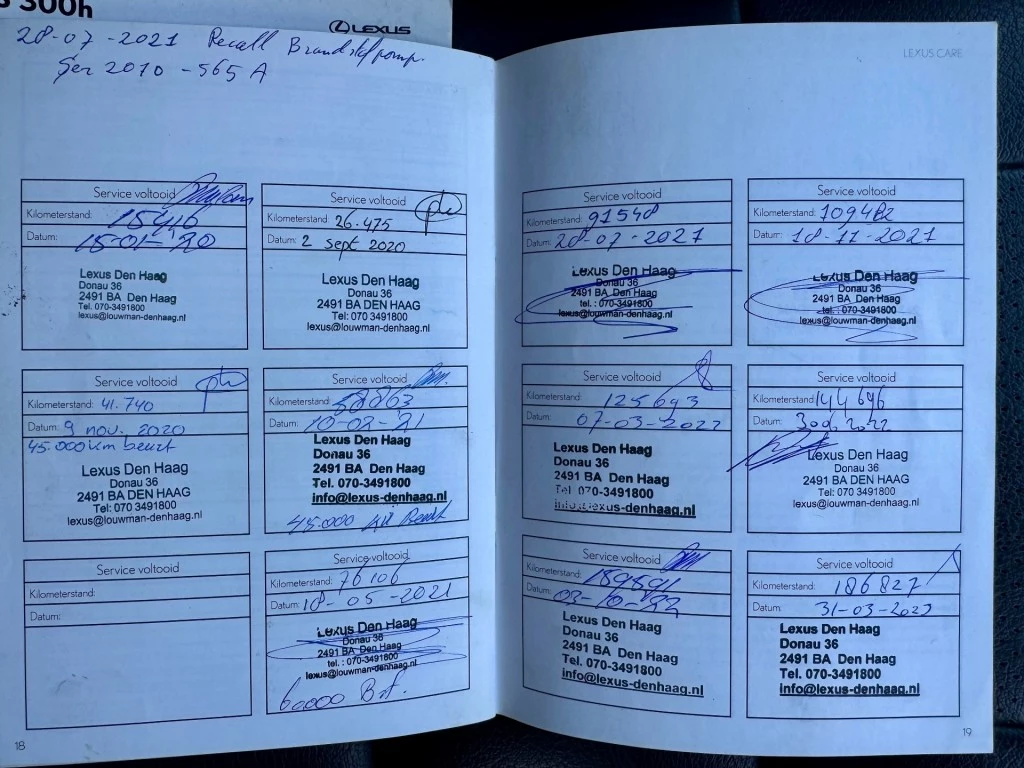 300h
LEXUS
28-07-2021 Recall Brandstofpomp.
Ser 2010-565A
Service voltooid
Kilometerstand: 15416
Datum: 15-01-20
Lexus Den Haag
Donau 36
2491 BA Den Haag
Tel. 070-3491800
lexus@louwman-denhaag.nl
Service voltooid
Kilometerstand: 26.475
Datum: 2 sept 2020
Lexus Den Haag
Donau 36
2491 BA DEN HAAG
Tel: 070 3491800
lexus@louwman-denhaag.nl
Service voltooid
Kilometerstand: 41.740
Datum: 9 nov. 2020
45.000 km beurt
Lexus Den Haag
Donau 36
2491 BA DEN HAAG
Tel: 070 3491800
lexus@louwman-denhaag.nl
Service voltooid
Kilometerstand:
Datum: 10-02-21
Lexus Den Haag
Donau 36
2491 BA Den Haag
Tel. 070-3491800
info@lexus-denhaag.nl
45.000 Beurt
Service voltooid
Kilometerstand:
Datum:
Service voltooid
Kilometerstand: 76106
Datum: 18-05-2021
Lexus Den Haag
Donau 36
2491 BA Den Haag
tel. : 070-3491800
lexus@louwman-denhaag.nl
60000
18
LEXUS CARE
Service voltooid
Kilometerstand: 91548
Datum: 28-07-2021
Lexus Den Haag
Donau 36
2491 BA Den Haag
tel. : 070-3491800
lexus@louwman-denhaag.nl
Service voltooid
Kilometerstand: 109482
Datum: 18-11-2021
Lexus Den Haag
Donau 36
2491 BA Den Haag
tel. : 070-3491800
lexus@louwman-denhaag.nl
Service voltooid
Kilometerstand: 125693
Datum: 07-03-2022
Lexus Den Haag
Donau 36
2491 BA Den Haag
Tel. 070-3491800
info@lexus-denhaag.nl
Service voltooid
Kilometerstand: 144696
Datum: 2022
Lexus Den Haag
Donau 36
2491 BA DEN HAAG
Tel: 070 3491800
lexus@louwman-denhaag.nl
Service voltooid
Kilometerstand:
Datum: 03-10-22
Lexus Den Haag
Donau 36
2491 BA Den Haag
Tel. 070-3491800
info@lexus-denhaag.nl
Service voltooid
Kilometerstand: 186827
Datum: 31-03-2023
Lexus Den Haag
Donau 36
2491 BA Den Haag
Tel. 070-3491800
info@lexus-denhaag.nl
19